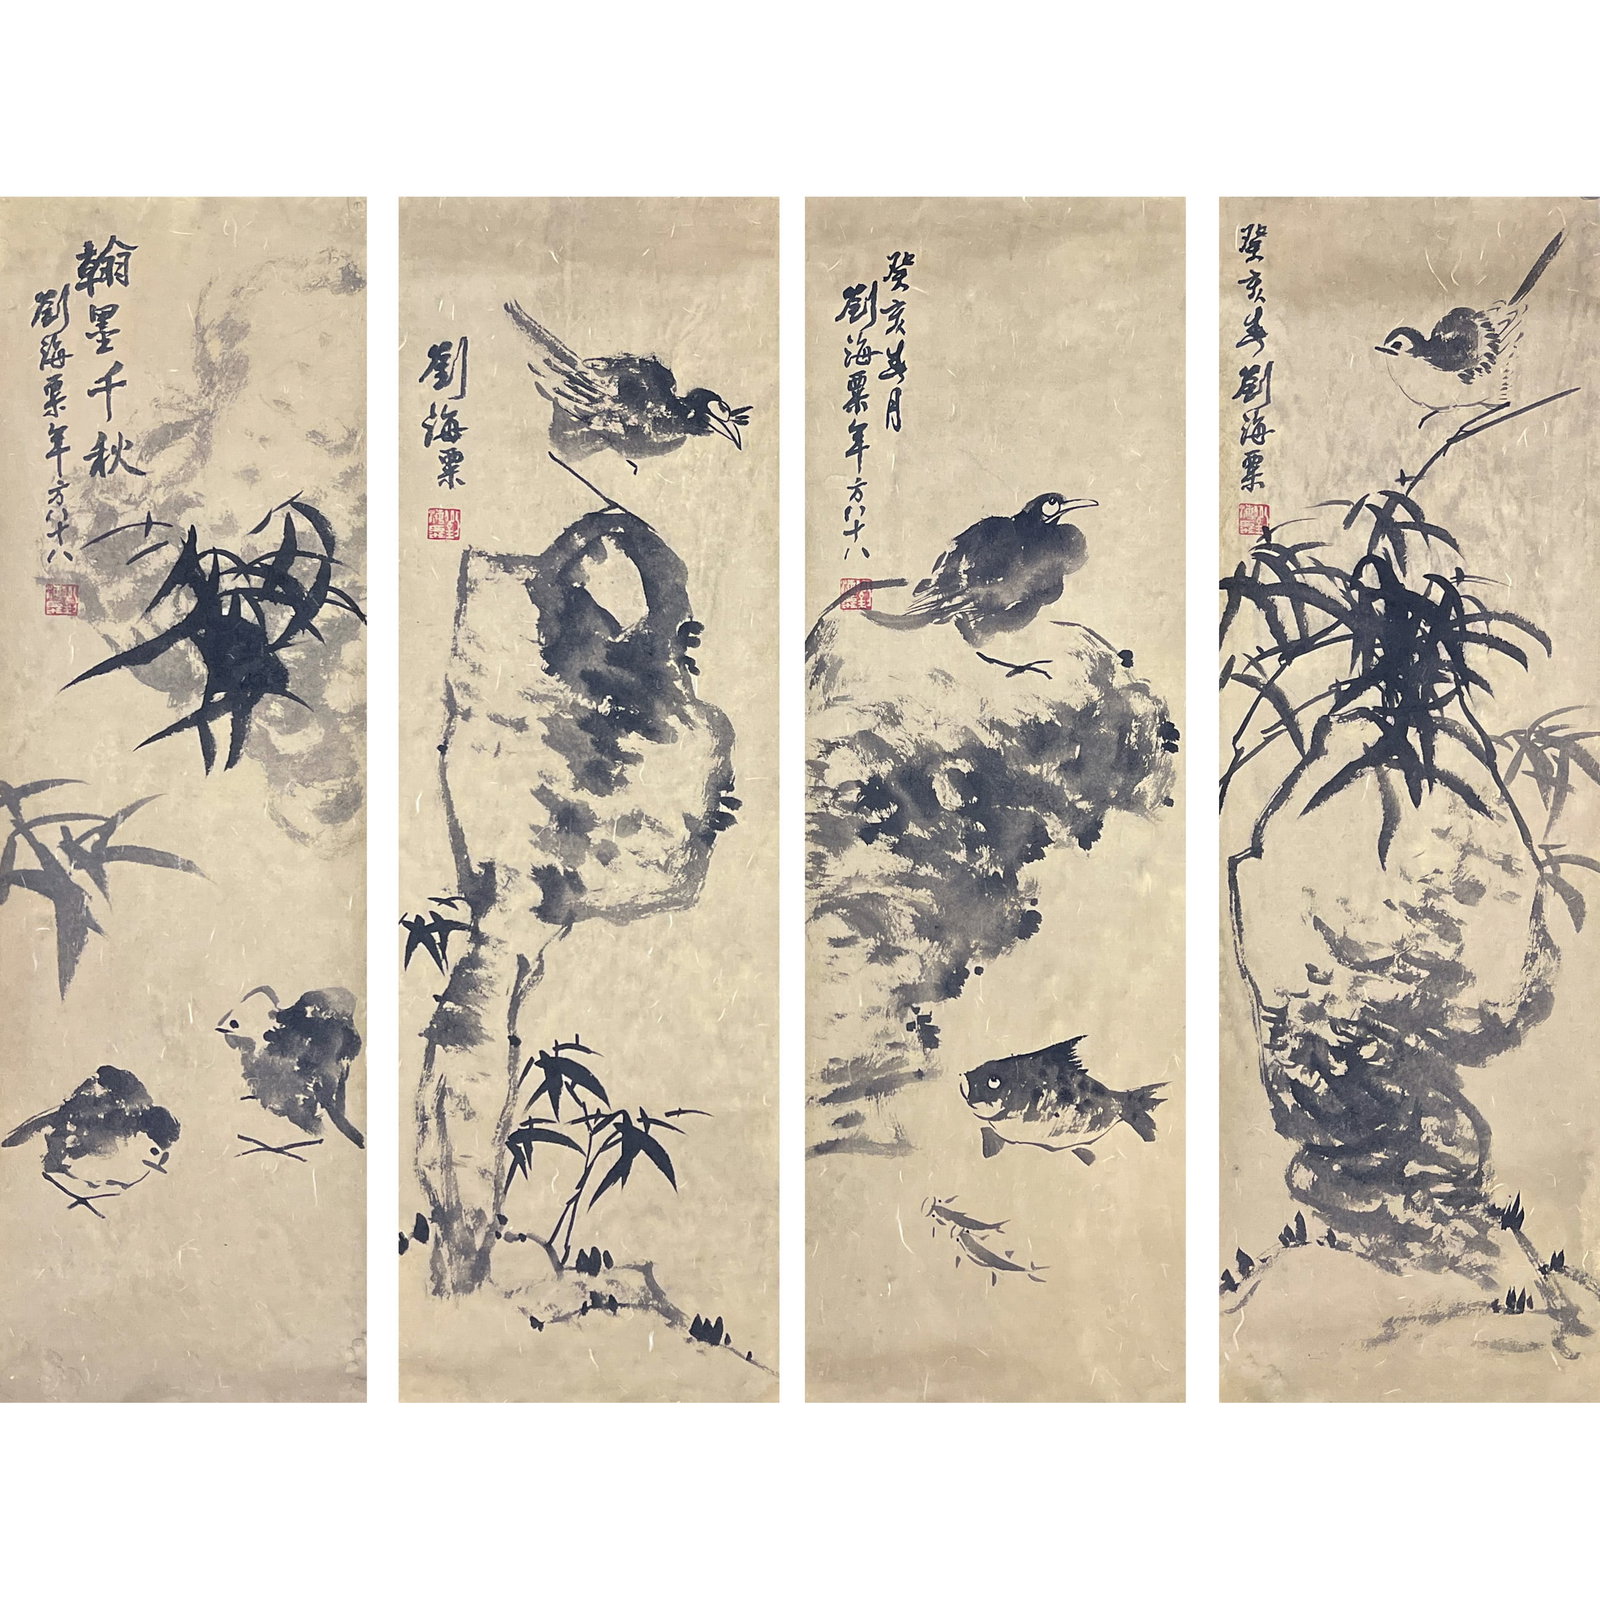 翰墨千秋
劉海粟年方八十八
劉海粟
癸亥春月
劉海粟年方八十八
癸亥春劉海粟